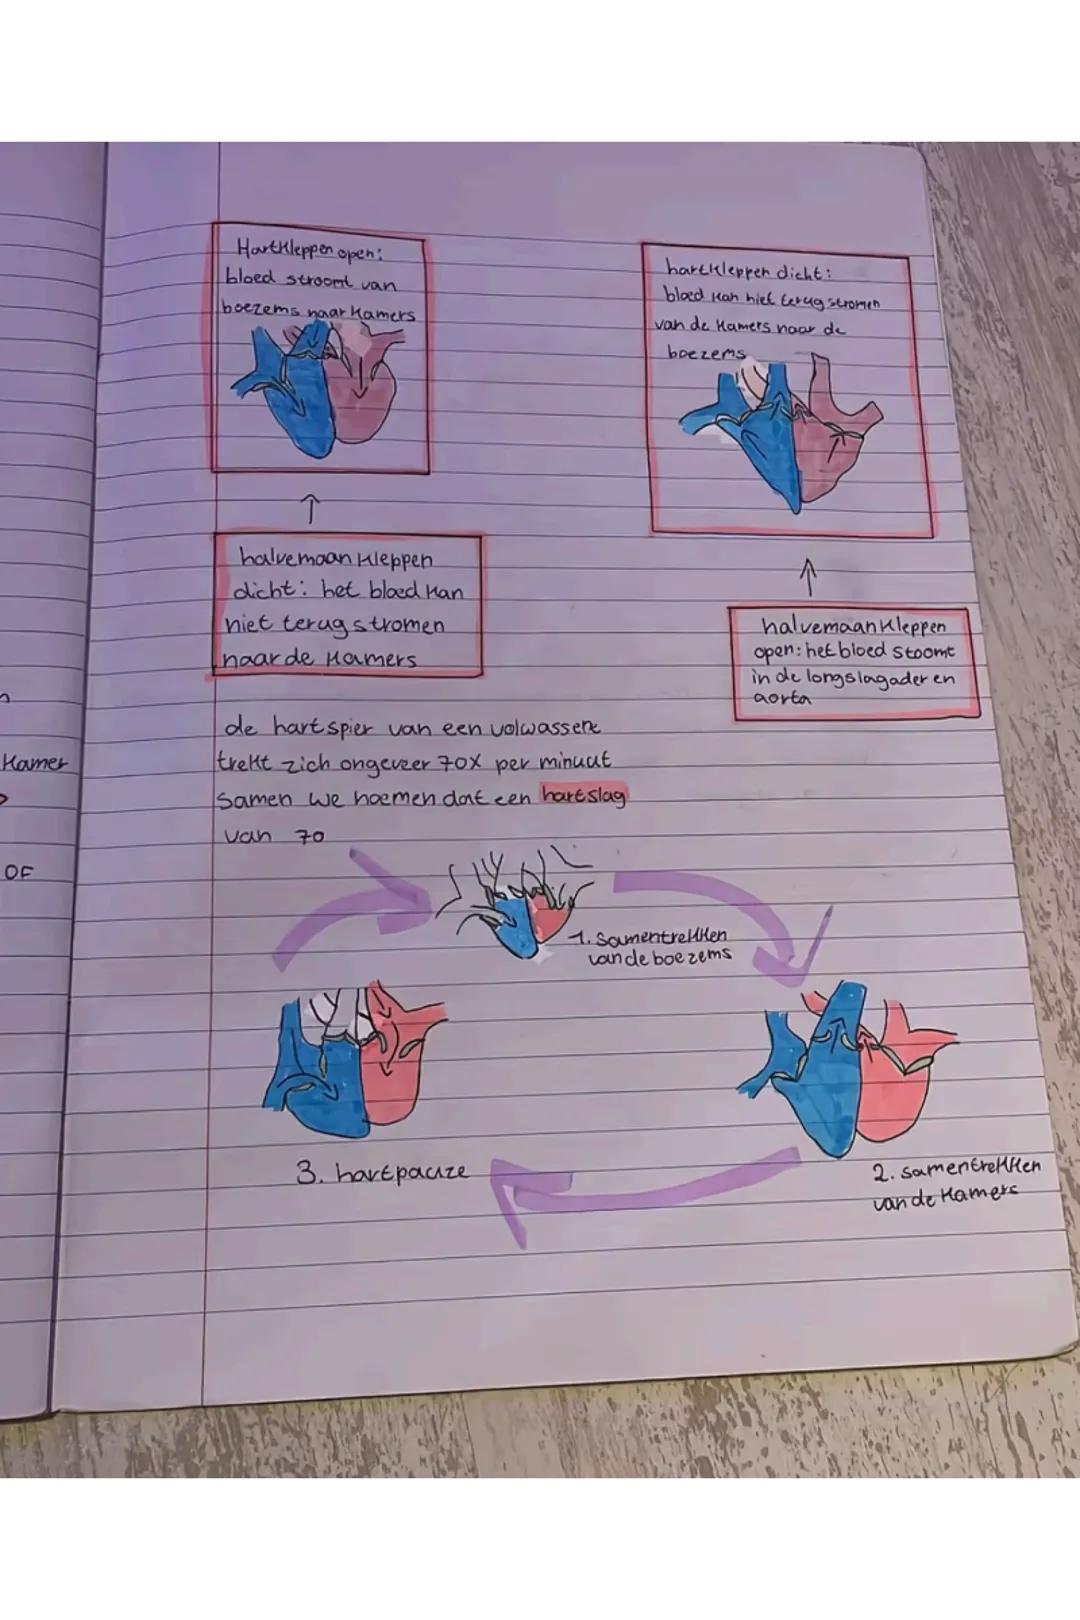 Hartkleppen open:
bloed stroomt van
boezems naar kamers
hartkleppen dicht:
bloed kan niet terug stromen
van de kamers naar de
boezems
halvemaan kleppen
dicht: het bloed kan
niet terug stromen
naar de kamers
halvemaankleppen
open: het bloed stoomt
in de longslagader en
aorta
de hartspier van een volwassene
trekt zich ongeveer 70x per minuut
samen we noemen dat een hartslag
van 70
Kamer
OF
1. samentrekken
van de boezems
2. samentrekken
van de kamers
3. hartpauze